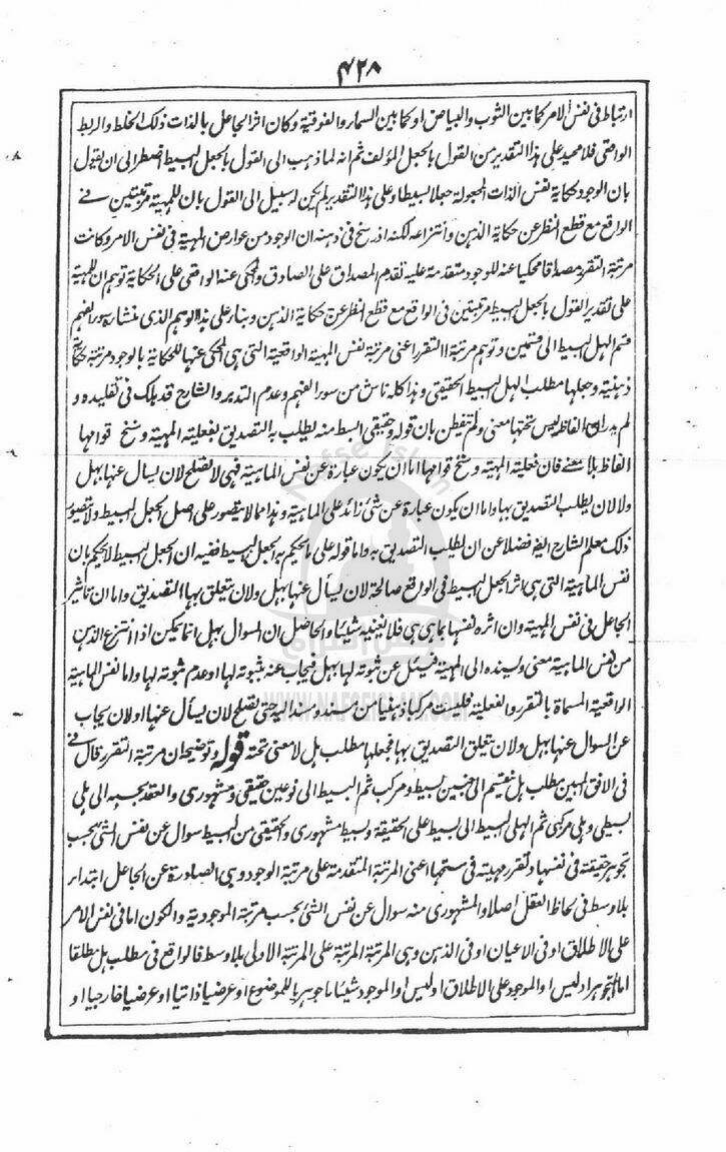 ۴۲۸
ارتباط فى نفس الامر كما بين الثوب والبياض او كما بين السماء والفوقية وكان اثر الجاعل بالذات ذلك الخلط والربط
الواقعى فلا محيد على هذا التقدير من القول بالجعل المؤلف ثم انه لما ذهب الى القول بالجعل البسيط اضطر الى ان يقول
بان الوجود حكاية نفس الذات المجعولة جعلا بسيطا وعلى هذا التقدير لم يكن له سبيل الى القول بان للمهية مرتبتين فے
الواقع مع قطع النظر عن حكاية الذهن وانتزاعه لكنه اذ سنخ فى ذهنه ان الوجود من عوارض المهية فى نفس الامر وكانت
مرتبة التقرر مصداقا محكيا عنه للوجود متقدمة عليه تقدم المصداق على الصادق والمحكى عنه الواقعى على الحكاية توهم ان للمهية
على تقدير القول بالجعل البسيط مرتبتين فى الواقع مع قطع النظر عن حكاية الذهن وبناء على هذا الوهم الذى منشاءه سوء الفهم
قسم الهل البسيط الى قسمين وتوهم مرتبة التقرر اعنى مرتبة نفس المهية الواقعية التى هى المحكى عنها للحكاية بالوجود مرتبة حكاية
ذهنية وجعلها مطلب الهل البسيط الحقيقى وهذا كله ناش من سوء الفهم وعدم التدبر والشارح قد هلك فى تقليده و
لم يدر ان الفاظ ليس تحتها معنى ولم يتفطن بان قوله وحقيقى ابسط منه يطلب به التصديق بفعلية المهية وسنخ قوامها
الفاظ بلا معنے فان فعلية المهية وسنخ قوامها اما ان يكون عبارة عن نفس الماهية فهى لا تصلح لان يسأل عنها بهل
ولا لان يطلب التصديق بها واما ان يكون عبارة عن شئ زائد على الماهية وهذا مما لا يتصور على اصل الجعل البسيط ولا تصور
ذلك معلم الشارح ايضا فضلا عن ان يطلب التصديق به واما قوله على ما يحكم به الجعل البسيط ففيه ان الجعل البسيط لا يحكم بان
نفس الماهية التى هى اثر الجعل البسيط فى الواقع صالحة لان يسأل عنها بهل ولان يتعلق بها التصديق واما ان تاثير
الجاعل فى نفس المهية وان اثره نفسها بما هى هى فلا يغنيه شيئا والحاصل ان السوال بهل انما يمكن اذا انتزع الذهن
من نفس الماهية معنى ويسنده الى المهية فيسئل عن ثبوته لها بهل فيجاب عنه بثبوته لها او عدم ثبوته لها واما نفس الماهية
الواقعية المسماة بالتقرر والفعلية فليست مركبا ذهنيا من مسند ومسند اليه حتى تصلح لان يسأل عنها او لان يجاب
عن السوال عنها بهل ولان يتعلق التصديق بها فجعلها مطلب هل لا معنى تحته قوله وتوضيحه ان مرتبة التقرر قال فے
فى الافق المبين مطلب هل ينقسم الى جنسين بسيط ومركب ثم البسيط الى نوعين حقيقى ومشهورى والعقد بحسبه الى هلى
بسيطى وهلى مركبى ثم الهلى البسيط الى بسيط على الحقيقة وبسيط مشهورى والحقيقى من البسيط سوال عن نفس الشئ بحسب
تجوهر حقيقته فى نفسها وتقرر مهيته فى سنخها اعنى المرتبة المتقدمة على مرتبة الوجود وهى الصادرة عن الجاعل ابتداء
بلا وسط فى لحاظ العقل اصلا والمشهورى منه سوال عن نفس الشئ بحسب مرتبة الموجودية والكون اما فى نفس الامر
على الاطلاق او فى الاعيان او فى الذهن وهى المرتبة المترتبة على المرتبة الاولى بلا وسط فالواقع فى مطلب هل مطلقا
اما المتجوهر او ليس او الموجود على الاطلاق او ليس او الموجود شيئا ما جوهريا للموضوع او عرضيا ذاتيا او عرضيا خارجيا او